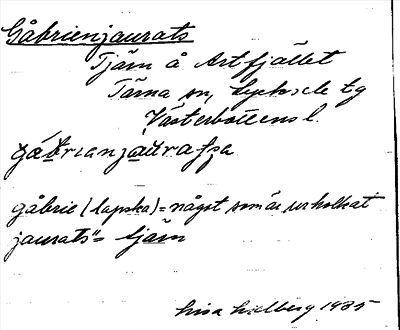 Gåbrienjaurats
Tjärn å Artfjället
Tärna sn, Lycksele tg
Västerbottens l.
gåbrie (lapska) = något som är urholkat
jaurats = tjärn
Lisa Lidberg 1935